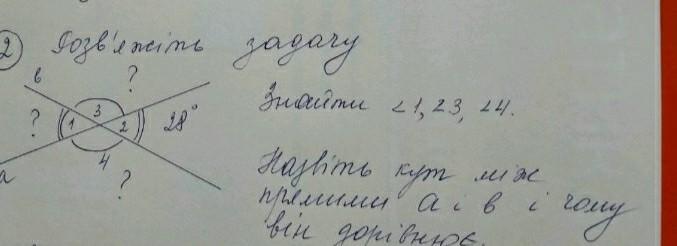 2 Розв'яжіть задачу
в ?
Знайти <1, <3, <4.
? 1 3 2 28°
4
а ?
Назвіть кут між
прямими а і в і чому
він дорівнює.